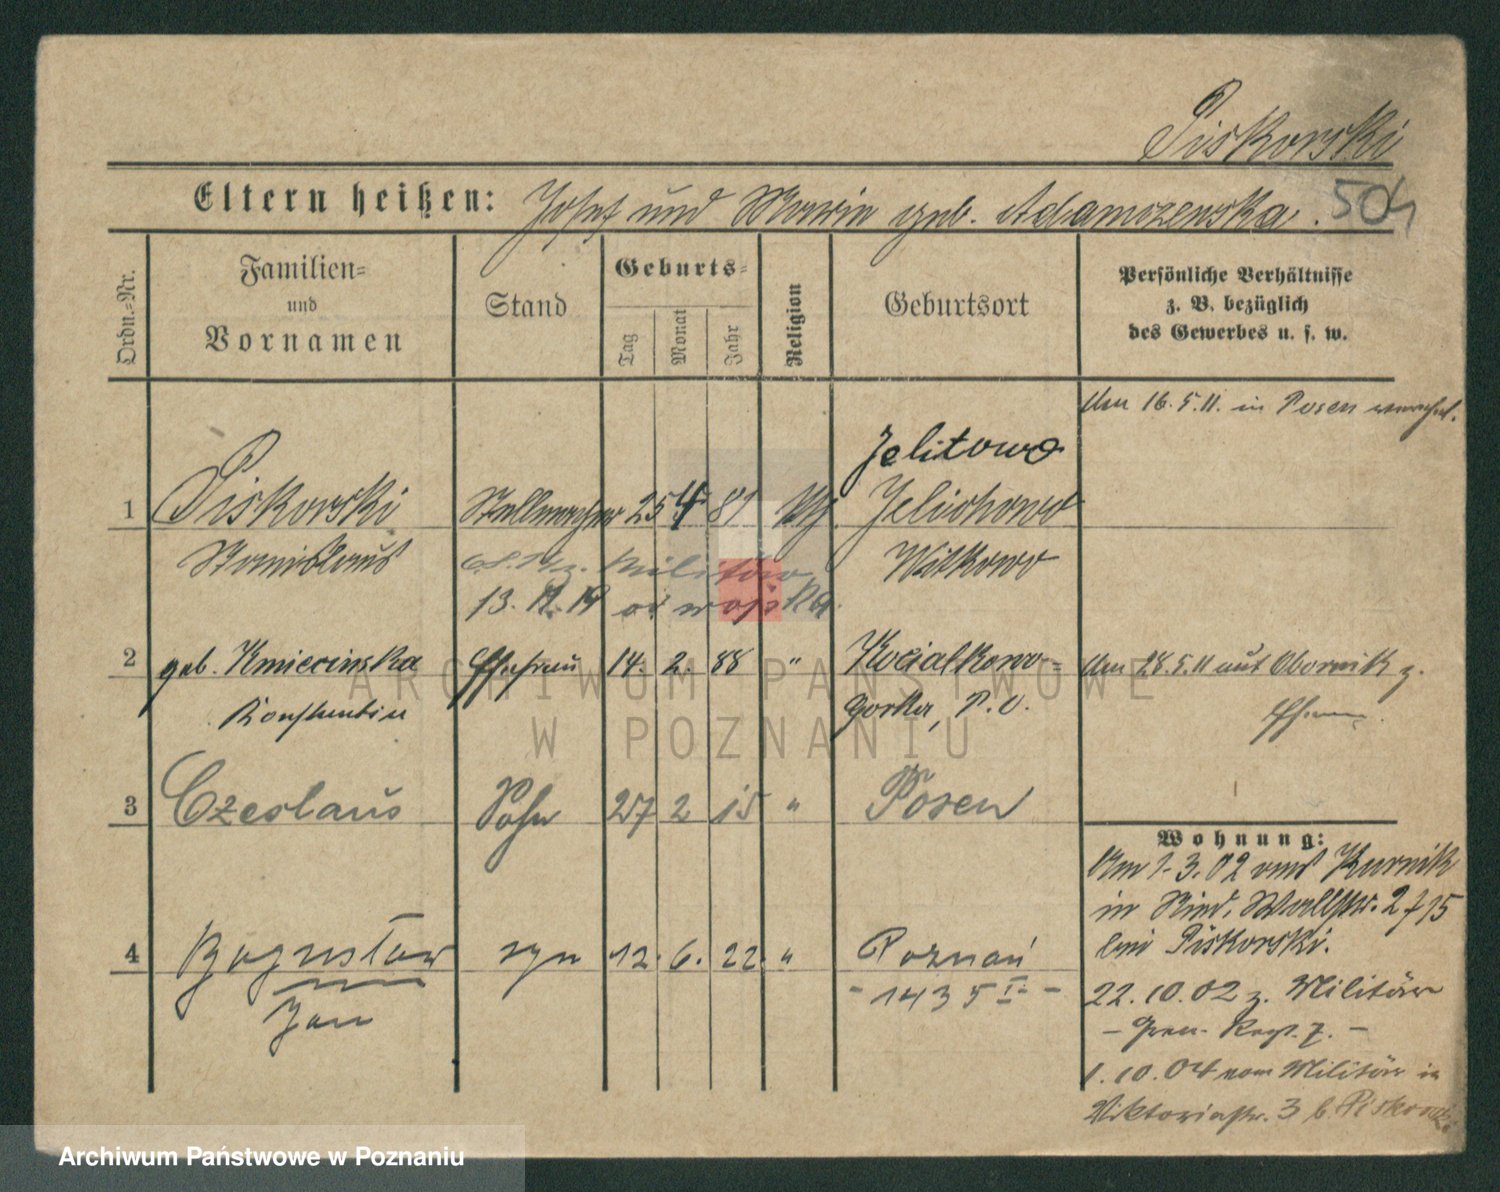 Piskorski
Eltern heißen: Josef und Maria geb. Adamczewska. 504
Ordn.-Nr.
Familien-
und
Vornamen
Stand
Geburts-
Tag Monat Jahr
Religion
Geburtsort
Persönliche Verhältnisse
z. B. bezüglich
des Gewerbes u. s. w.
Am 16.5.11. in Posen
Jelitowo
1 Piskorski Stellmacher 25 4 81 Jelichowo
Stanislaus Witkowo
Militär
13. 12. 19 od wojska.
2 geb. Kmiecinska Ehefrau 14. 2. 88 " Kocialkowo- Am 28.5.11 aus Obornik z.
Konstantia gorka, P. O.
3 Czeslaus Sohn 27 2 15 " Posen
Wohnung:
Am 1.3.02 aus Kurnik
in Wallstr. 2
bei Piskorski.
4 Bogusław syn 12. 6. 22. " Poznań
Jan - 1435 I. -
22.10.02 z. Militär
- Gren. Regt. 7. -
1.10.04 vom Militär in
Viktoriastr. 3 b. Piskorski
ARCHIWUM PAŃSTWOWE
W POZNANIU
Archiwum Państwowe w Poznaniu